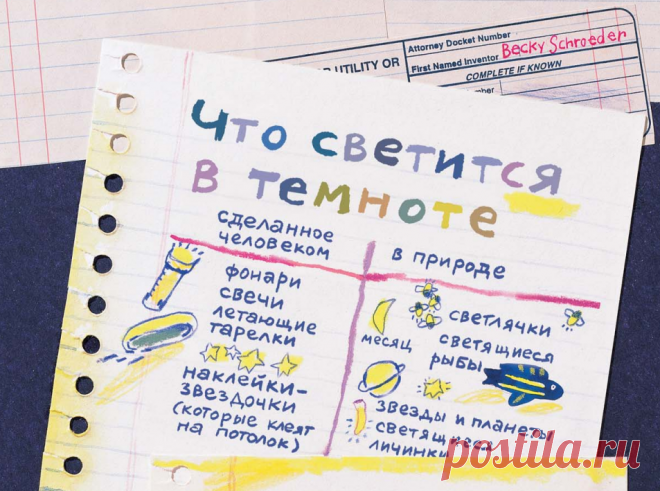 Attorney Docket Number
First Named Inventor Becky Schroeder
UTILITY OR
COMPLETE IF KNOWN
Что светится
в темноте
сделанное
человеком
фонари
свечи
летающие
тарелки
наклейки-
звездочки
(которые клеят
на потолок)
в природе
светлячки
месяц
светящиеся
рыбы
звезды и планеты
светящиеся
личинки
postila.ru